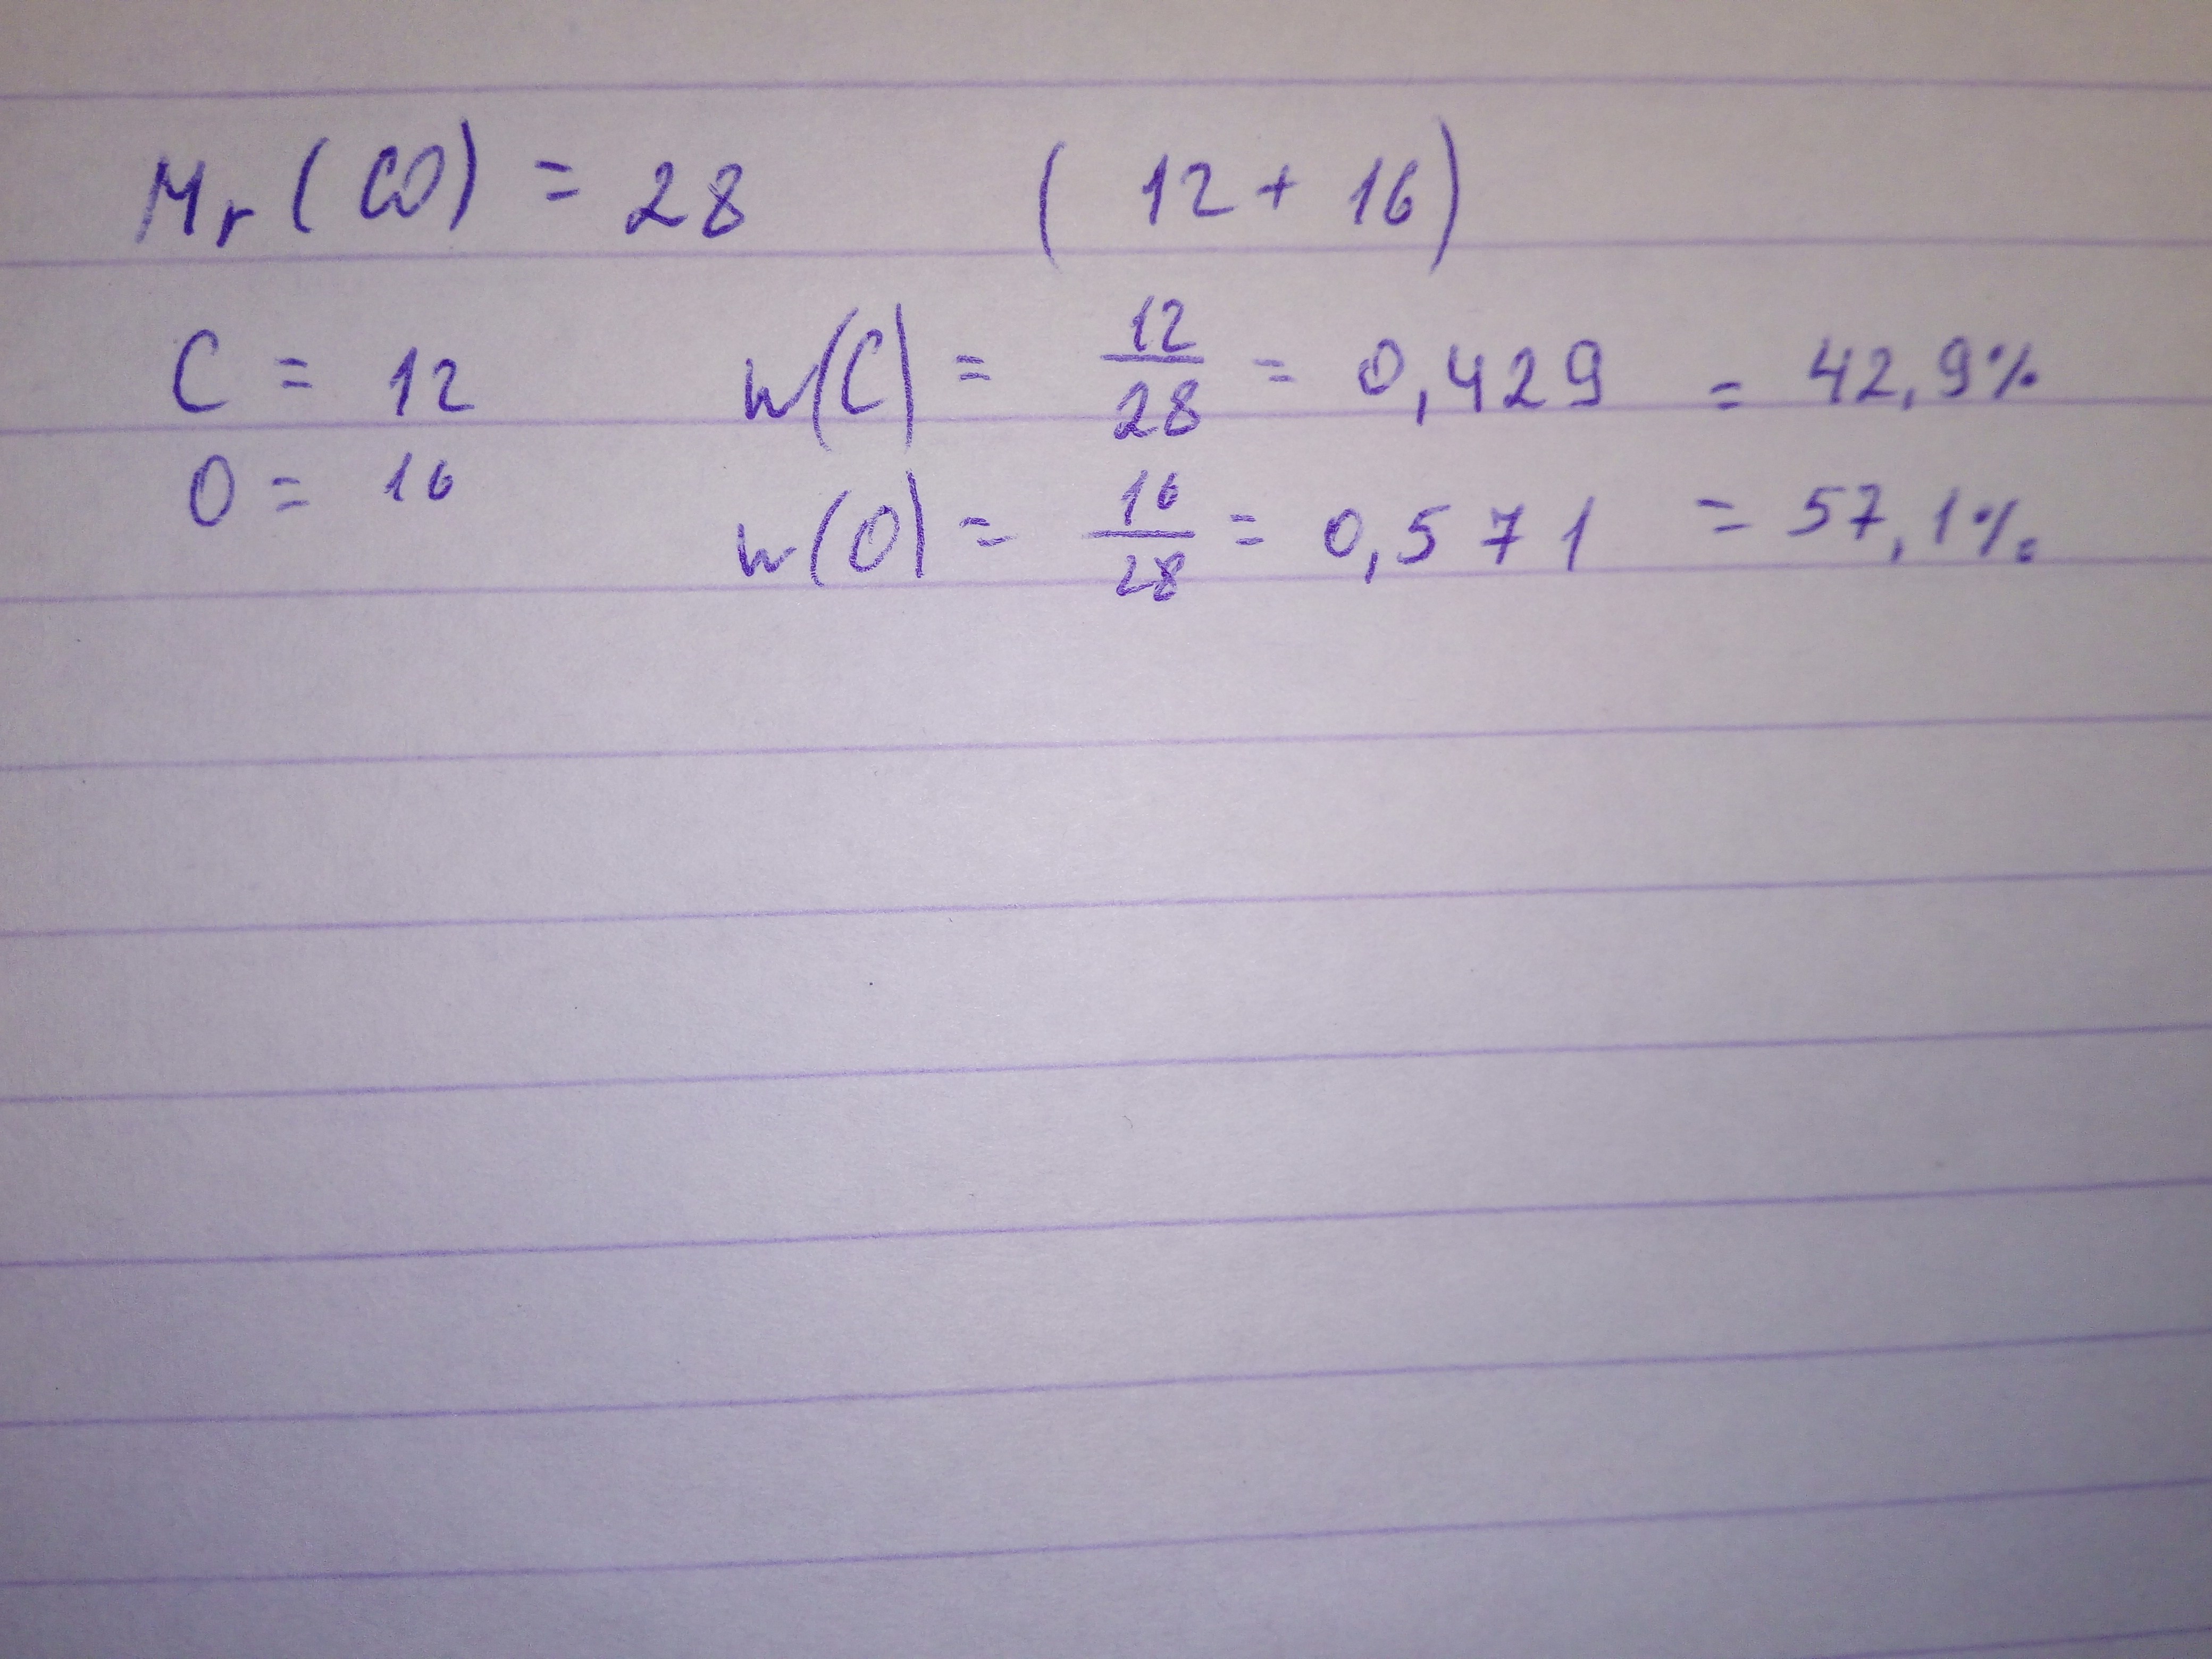 Mr (CO) = 28 (12 + 16)
C = 12 w(C) = 12/28 = 0,429 = 42,9%
O = 16 w(O) = 16/28 = 0,571 = 57,1%.